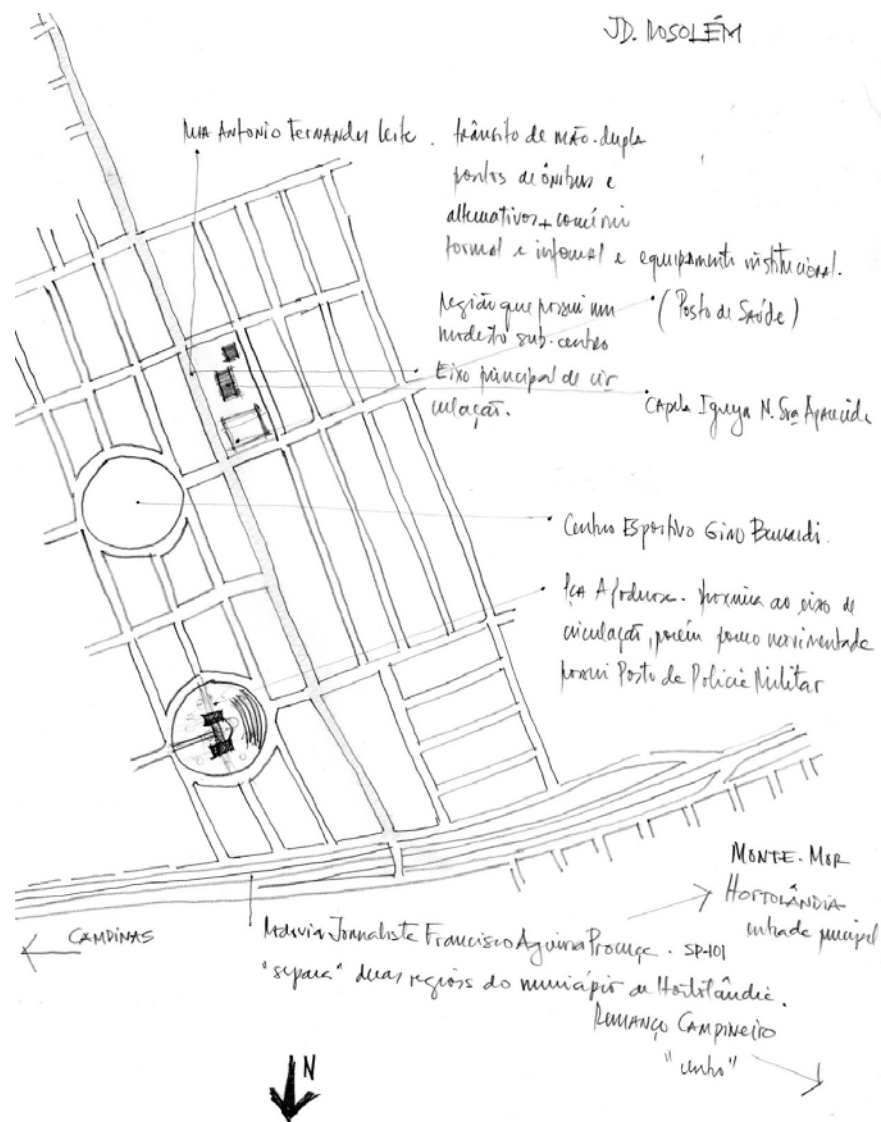 JD. ROSOLÉM
RUA ANTONIO FERNANDES Leite. trânsito de mão-dupla
pontos de ônibus e
alternativos + comércio
formal e informal e equipamento institucional.
Região que possui um
modesto sub-centro
(Posto de Saúde)
Eixo principal de cir
culação.
CAPELA Igreja N. Sra Aparecida
Centro Esportivo GINO
PÇA A Poderosa. próxima ao eixo de
circulação, porém pouco movimentada
possui Posto de Policia Militar
MONTE-MOR
HORTOLÂNDIA
entrada principal
CAMPINAS
Rodovia Jornalista Francisco Aguirra Proença. SP-101
"separa" duas regiões do município de Hortolândia.
REMANSO CAMPINEIRO
"centro"
N